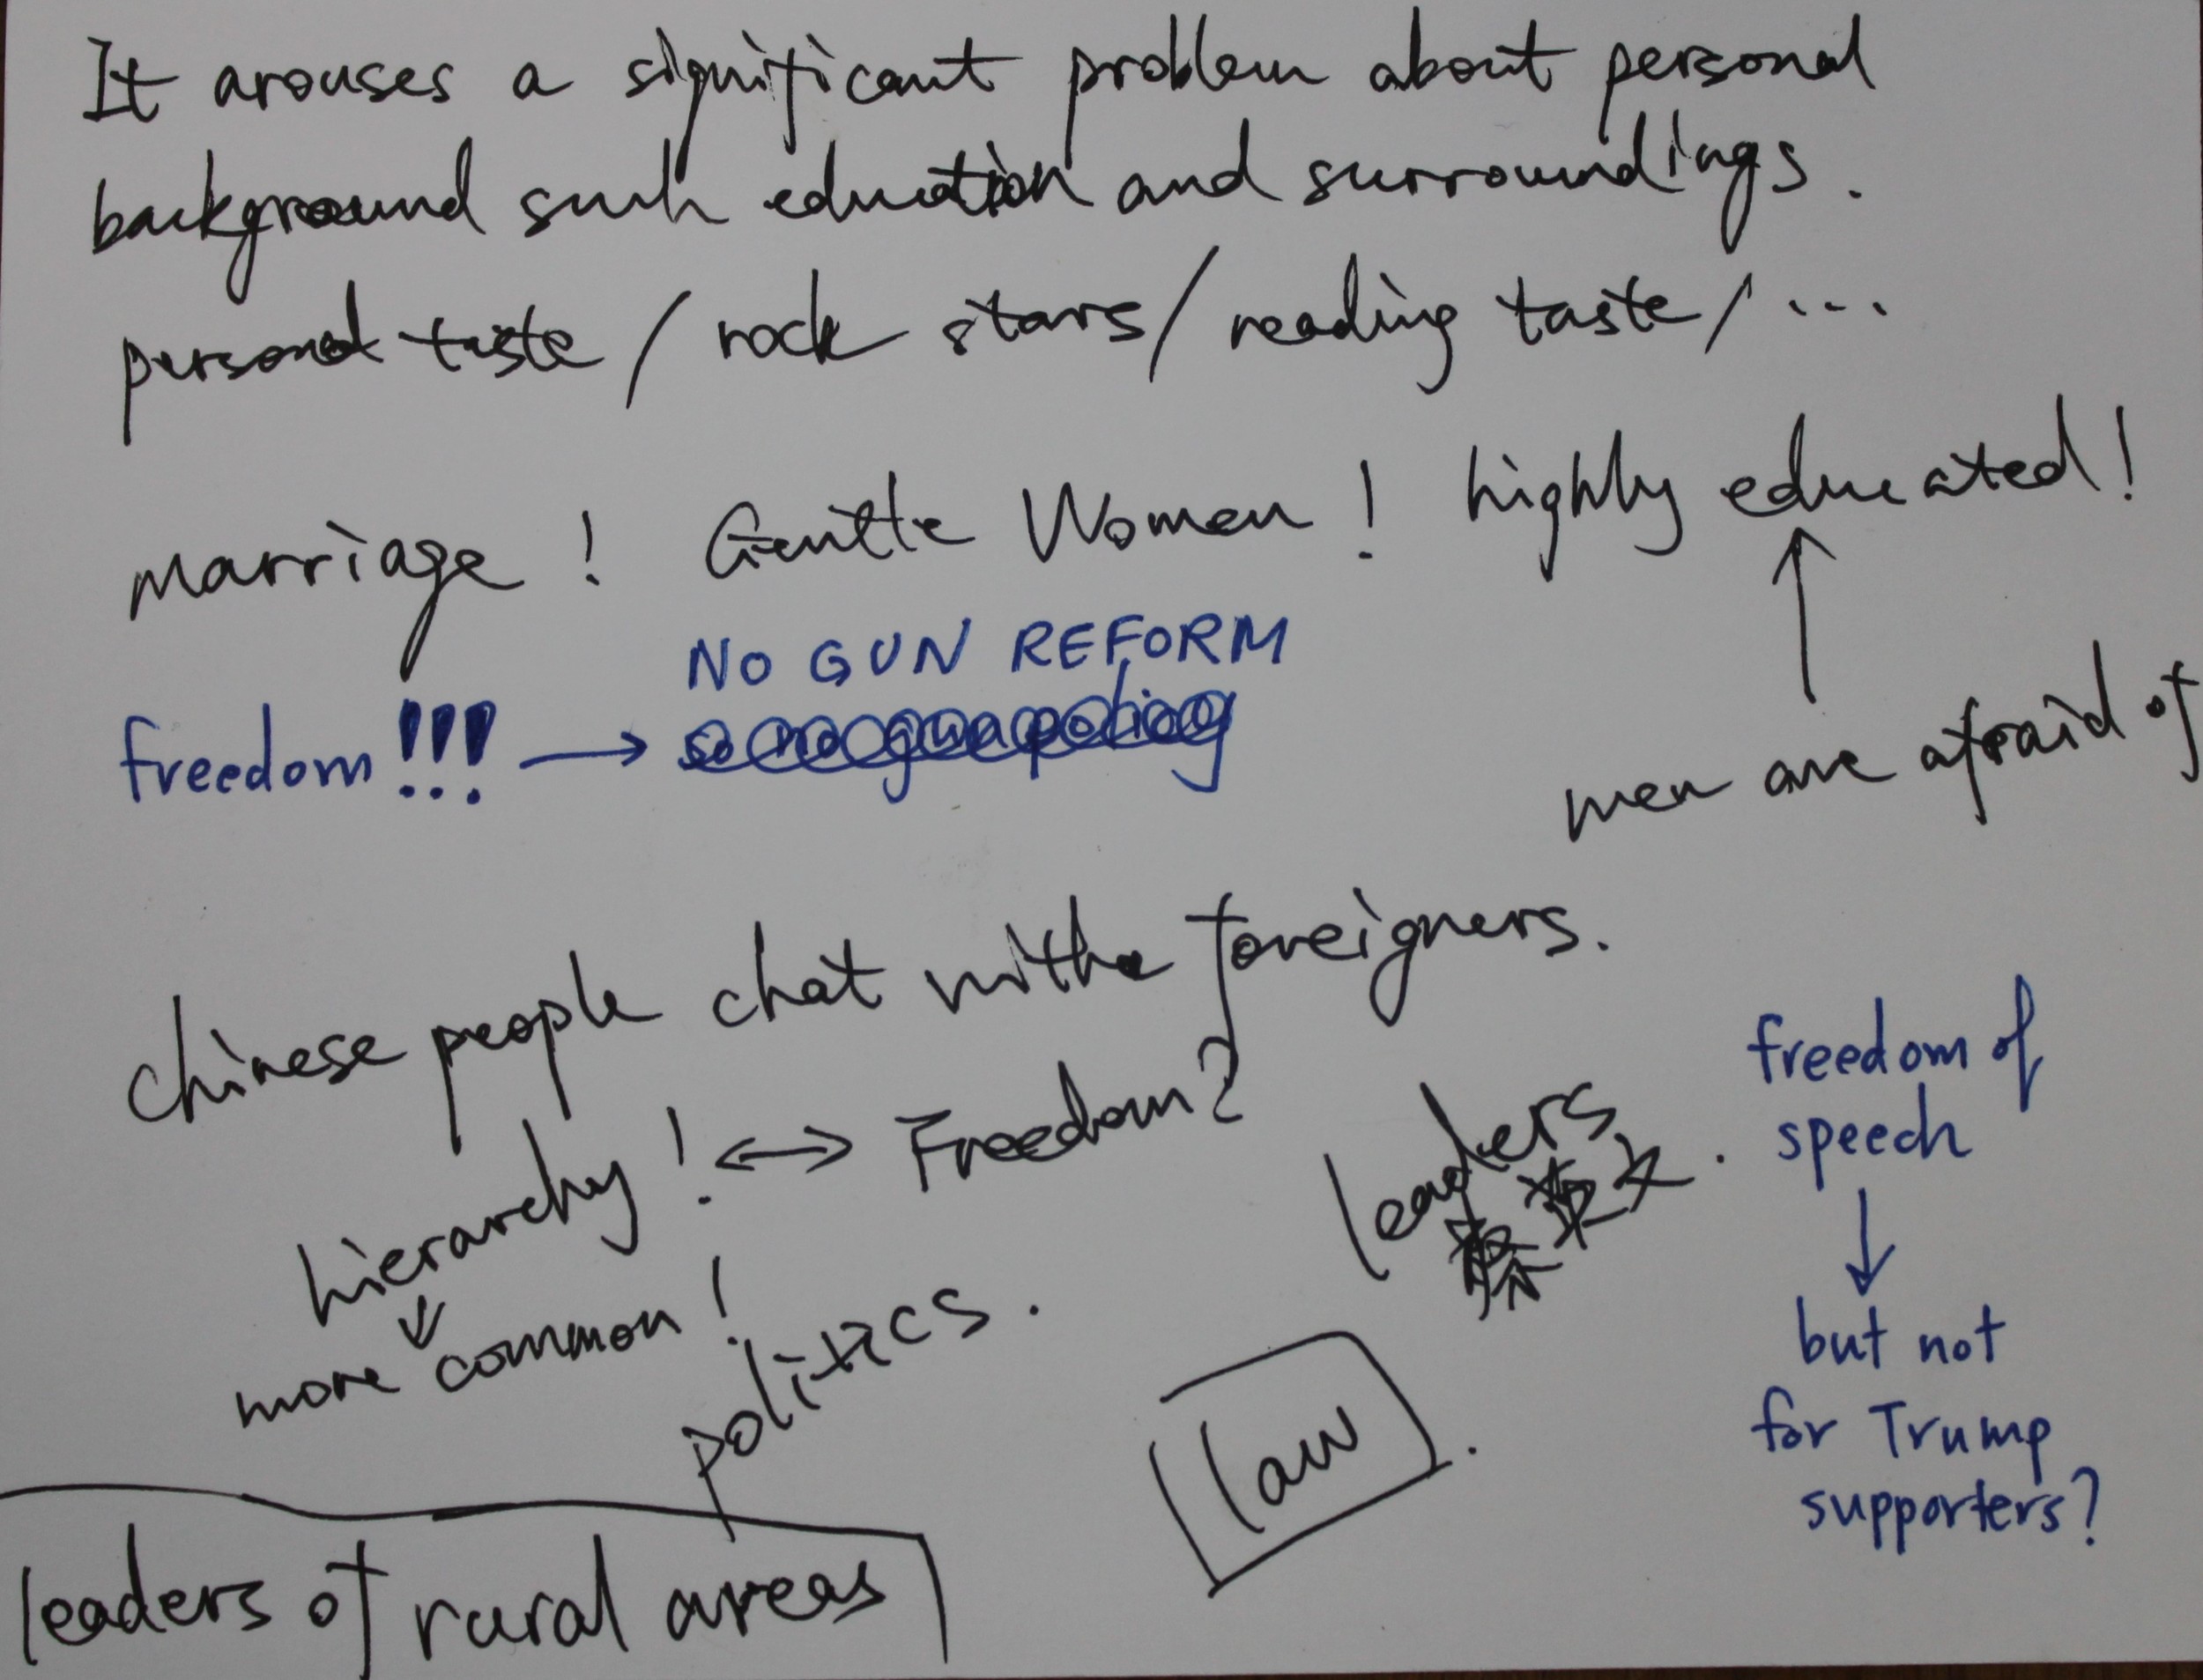 It arouses a significant problem about personal
background such education and surroundings.
personal taste / rock stars / reading taste / ...
marriage ! Gentle Women ! highly educated !
men are afraid of
NO GUN REFORM
freedom !!! → so no gun policy
Chinese people chat withe foreigners.
hierarchy ! ↔ Freedom?
more common !
politics.
leaders
蔡英文.
law.
freedom of
speech
↓
but not
for Trump
supporters?
leaders of rural areas